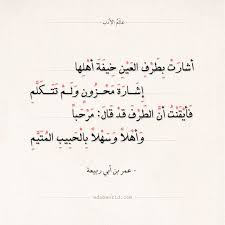 - عالم الأدب -
أشارَت بِطَرفِ العَينِ خيفَةَ أَهلِها
إِشارَةَ مَحزونٍ وَلَم تَتَكَلَّمِ
فَأَيقَنتُ أَنَّ الطَرفَ قَد قالَ: مَرحَباً
وَأَهلاً وَسَهلاً بِالحَبيبِ المُتَيَّمِ
- عمر بن أبي ربيعة -
adabworld.com